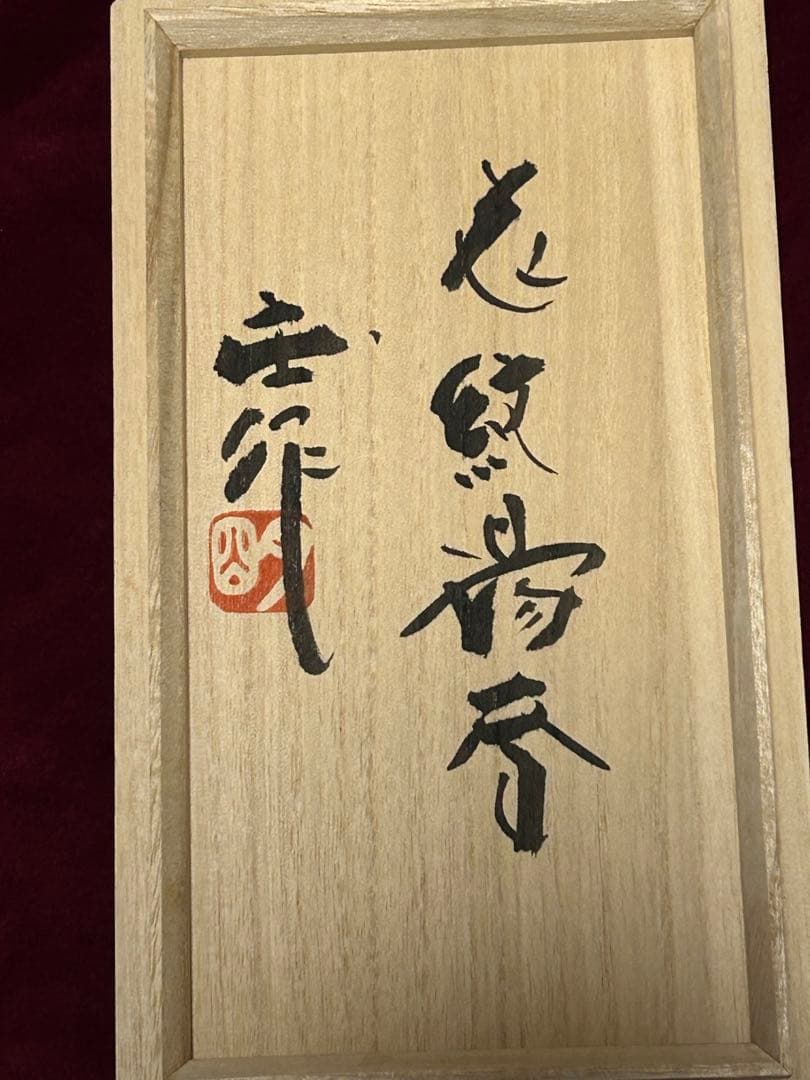 花紋湯呑
壬作